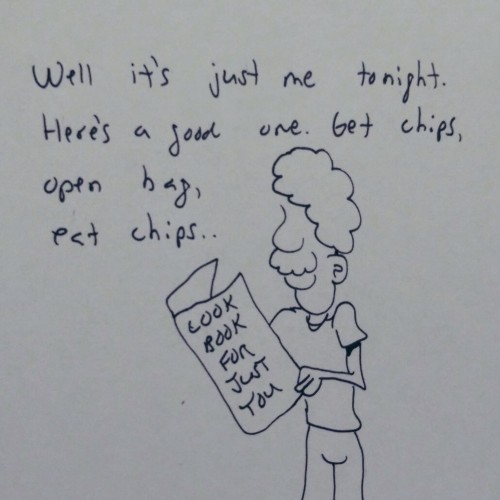 Well it's just me tonight.
Here's a good one. Get chips,
open bag,
eat chips..
COOK
BOOK
FOR
JUST
YOU